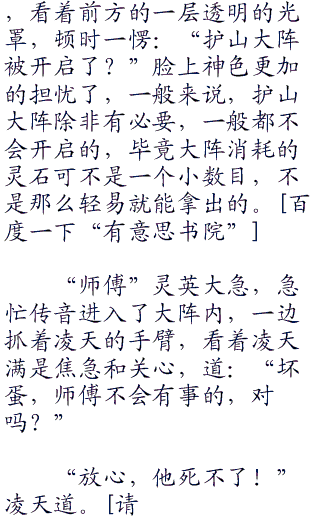 ，看着前方的一层透明的光
罩，顿时一愣：“护山大阵
被开启了？”脸上神色更加
的担忧了，一般来说，护山
大阵除非有必要，一般都不
会开启的，毕竟大阵消耗的
灵石可不是一个小数目，不
是那么轻易就能拿出的。[百
度一下“有意思书院”]
“师傅”灵英大急，急
忙传音进入了大阵内，一边
抓着凌天的手臂，看着凌天
满是焦急和关心，道：“坏
蛋，师傅不会有事的，对
吗？”
“放心，他死不了！”
凌天道。[请